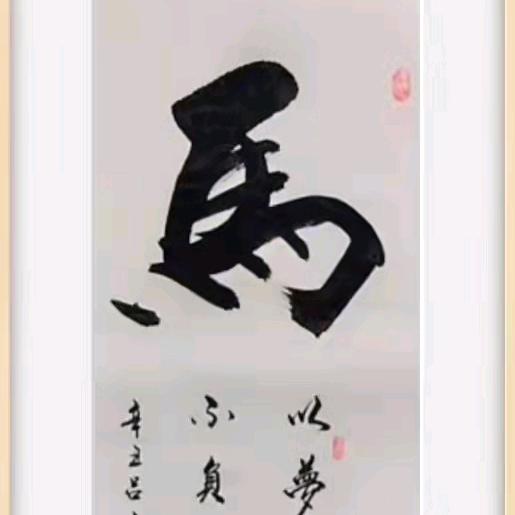 馬
以夢
不負
辛丑吕